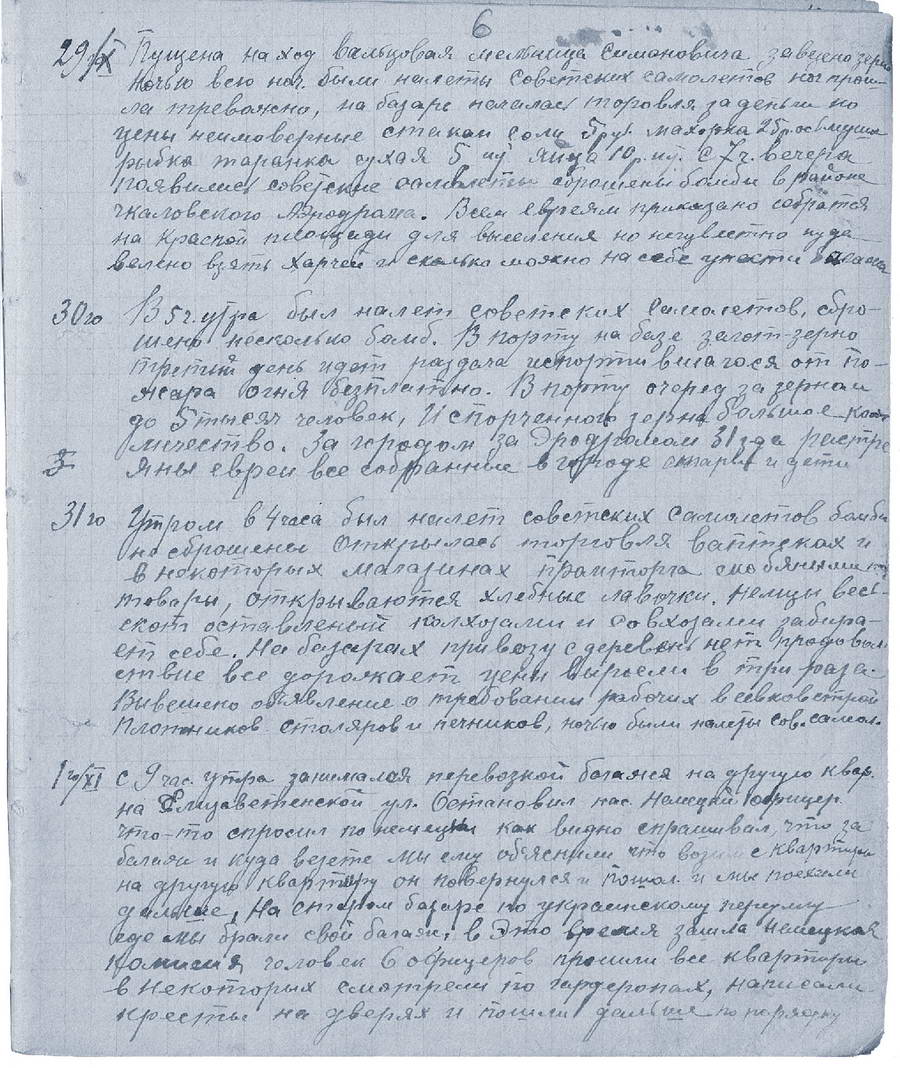 6
29/X Пущена на ход вальцовая мельница Симоновича завезено зерно
Ночью всю ноч. были налеты советских самолетов ноч прош-
ла тревожно, на базаре началась торговля за деньги но
цены неимоверные стакан соли 5 руб. махорка 25 р. осьмушка
рыбка таранка сухая 5 шт яйца 10 р. шт. С 7 ч. вечера
появились советские самолеты сброшены бомбы в районе
чкаловского Аэродрома. Всем евреям приказано собратся
на Красной площади для выселения но неизвестно куда
велено взять харчей и сколько можно на себе унести
30го В 5 ч. утра был налет советских самолетов, сбро-
шено несколько бомб. В порту на базе загот-зерно
третий день идет раздача испортившагося от по-
жара огня безплатно. В порту очеред за зерном
до 5 тысяч человек, Испорченного зерна большое коли
личество. За городом за Эродромом 31го расстре
яны евреи все собранные в городе стары и дети
31го Утром в 4 часа был налет советских самолетов бомбы
не сброшены Открылась торговля ваптеках и
в некоторых магазинах прамторга скобянными
товары, открываются хлебные лавочки. Немцы весь-
скот оставленый колхозами и совхозами забира-
ет себе. На базарах привозу с деревень нет продоволь
ствие все дорожает цены выросли в три раза.
Вывешено объявление о требовании рабочих в севковстрой
плотников столяров и печников, ночью были налеты сов. самол.
1го/XI с 9 час. утра занимался перевозкой багажа на другую квар.
на Елизаветенской ул. Остановил нас Немецкий офицер
что-то спросил по немецки как видно спрашивал, что за
багаж и куда везете мы ему объяснили что возим с квартиры
на другую квартиру он повернулся и пошол. и мы поехали
дальше, На старом базаре по украинскому переулку
где мы брали свой багаж, в Это время зашла Немецкая
комисия человек 6 офицеров прошли все квартиры
в некоторых смотрели по гардеропах, написали
кресты на дверях и пошли дальше по порядку